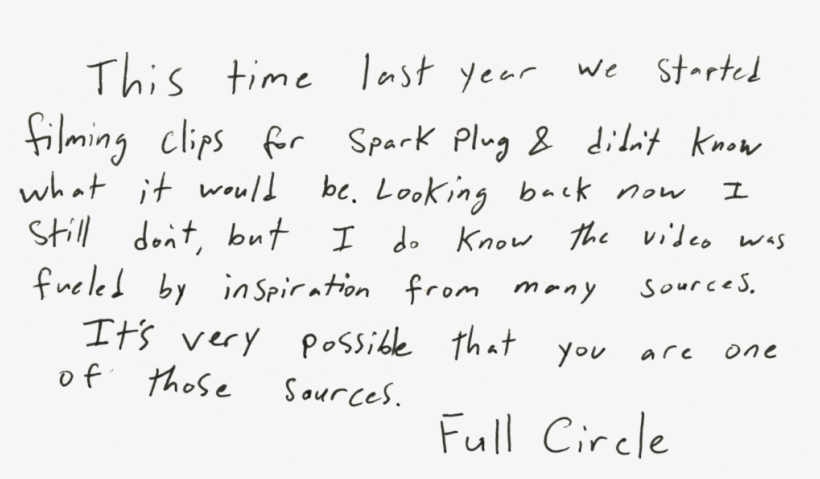 This time last year we started
filming clips for Spark Plug & didn't know
what it would be. Looking back now I
still don't, but I do know the video was
fueled by inspiration from many sources.
It's very possible that you are one
of those sources.
Full Circle